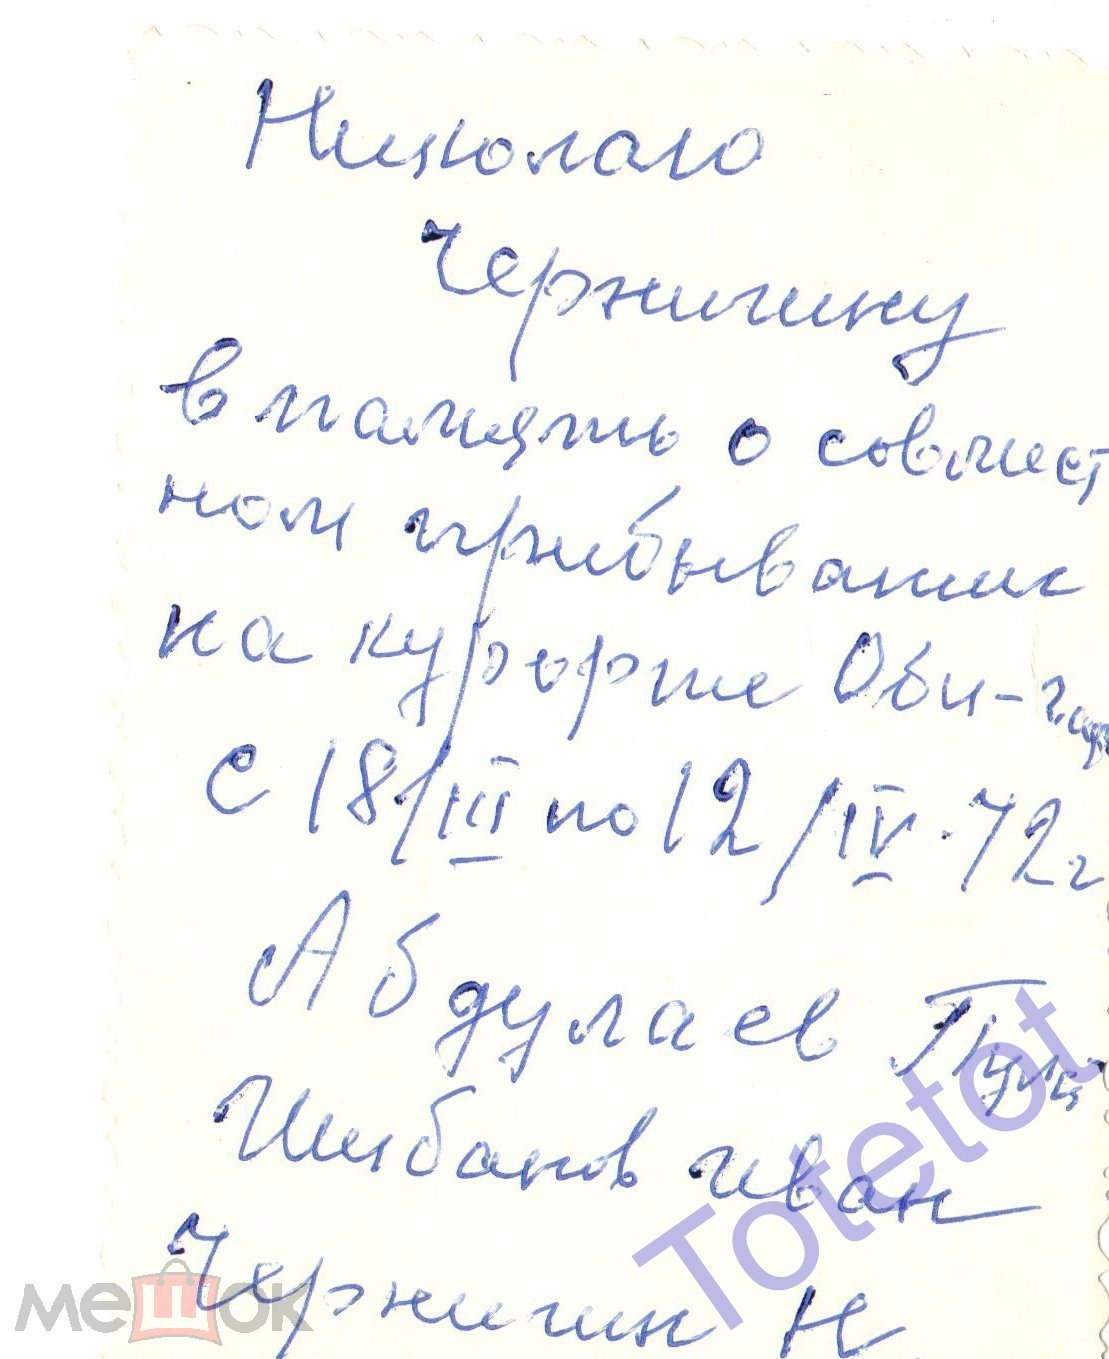 Николаю
Чернигину
в память о совмест
ном прибывании
на курорте Оби-гар
с 18/III по 12/IV-72г
Абдулаев
Шибанов Иван
Чернигин Н
Totetot
мешок